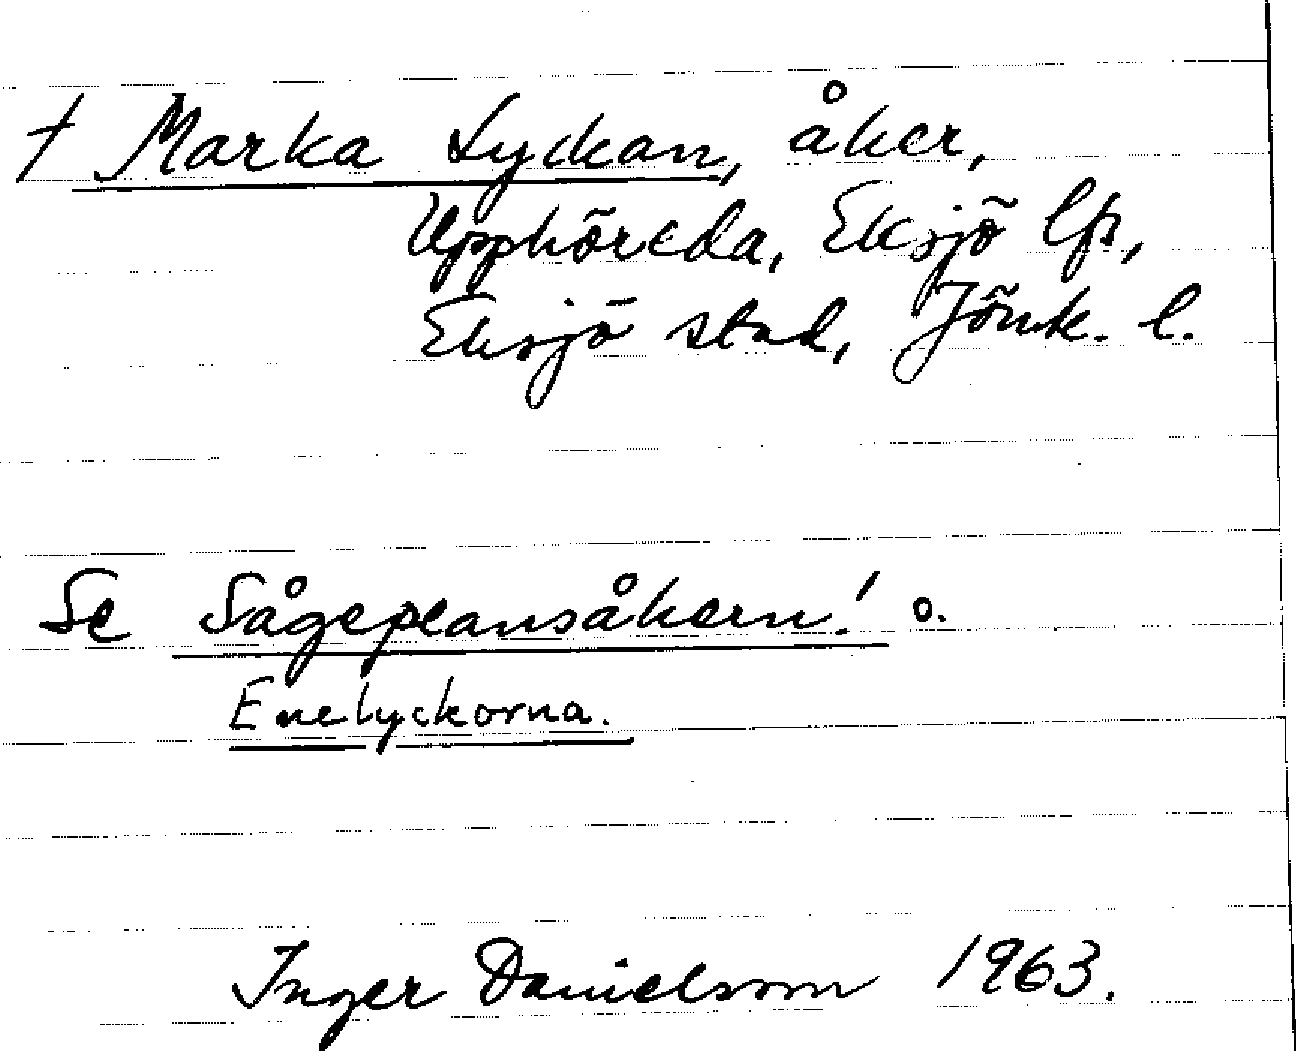 † Marka Lyckan, åker,
Upphöreda, Eksjö lfs,
Eksjö stad, Jönk. l.
Se Sågeplansåkern! o.
Enelyckorna.
Inger Danielsson 1963.